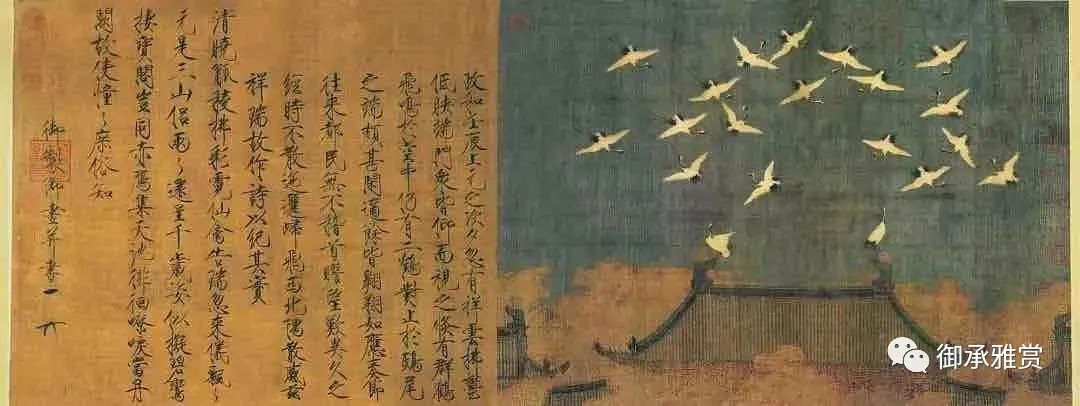 政和壬辰上元之次夕忽有祥雲拂鬱
低映端門衆皆仰而視之倏有群鶴
飛鳴於空中仍有二鶴對止於鴟尾
之端頗甚閒適餘皆翱翔如應奏節
往來都民無不稽首瞻望歎異久之
經時不散迤邐歸飛西北隅散感茲
祥瑞故作詩以紀其實
清曉觚稜拂彩霓仙禽告瑞忽來儀飄々
元是三山侶兩々還呈千歲姿似擬碧鸞
棲寶閣豈同赤鴈集天池徘徊嘹唳當丹
闕故使憧々庶俗知
御製御畫并書
御承雅赏